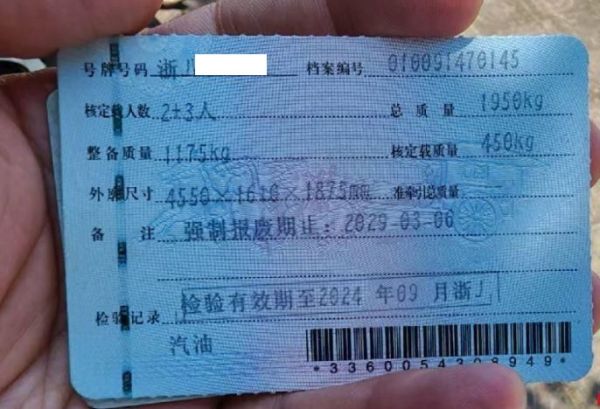 号牌号码 浙J 档案编号 010091470145
核定载人数 2+3人 总质量 1950kg
整备质量 1175kg 核定载质量 450kg
外廓尺寸 4550×1610×1875mm 准牵引总质量
备注 强制报废期止：2029-03-06
检验记录 检验有效期至2024年09月浙J
汽油
*3360054308949*